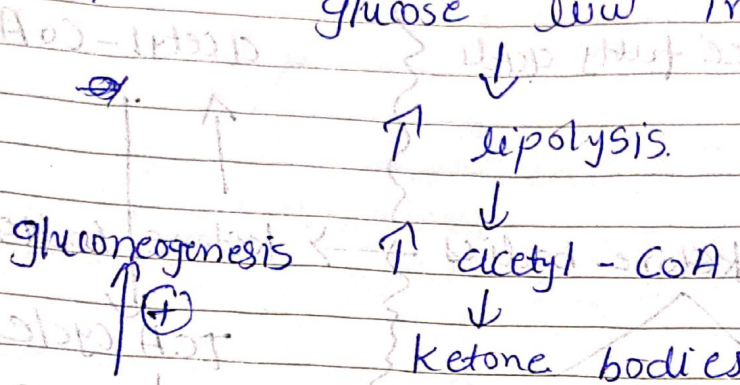 glucose low
↓
↑ lipolysis.
↓
gluconeogenesis ↑ acetyl - CoA
↑ + ↓
Ketone bodies